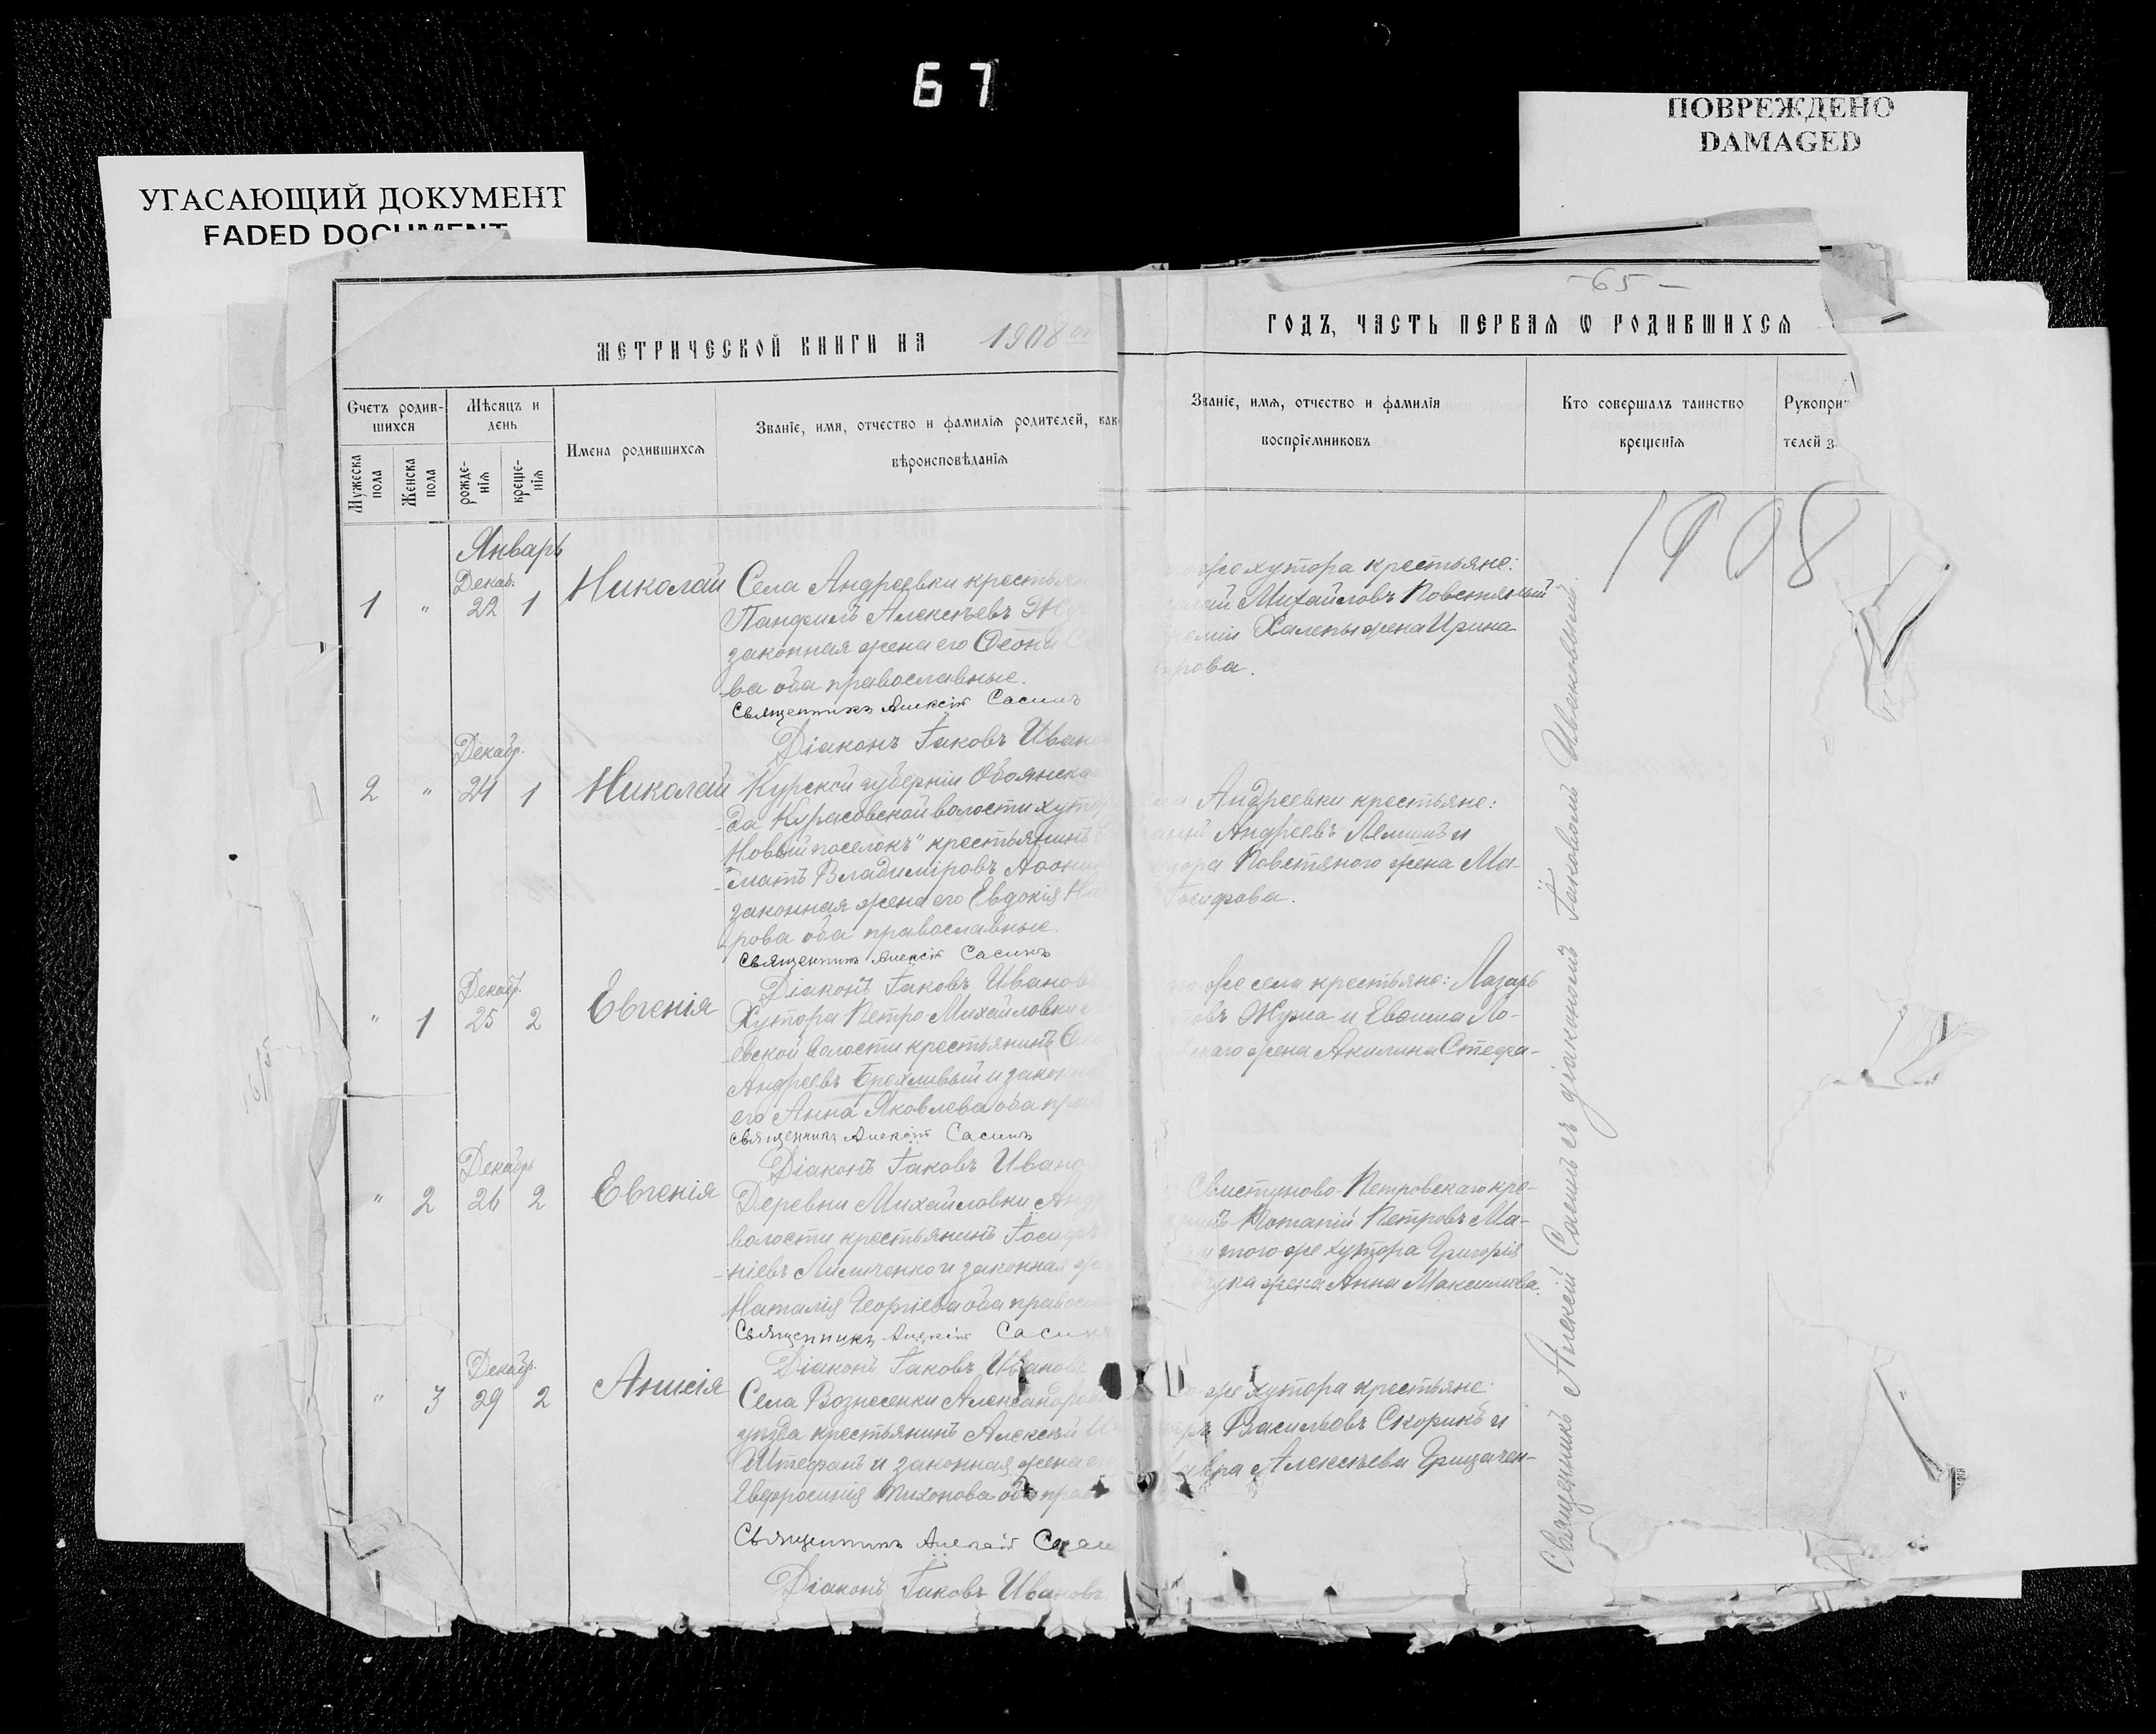 67
ПОВРЕЖДЕНО
DAMAGED
УГАСАЮЩИЙ ДОКУМЕНТ
FADED DOCUMENT
-65-
МЕТРИЧЕСКОЙ КНИГИ НА 1908
ГОДЪ, ЧАСТЬ ПЕРВАЯ Ѡ РОДИВШИХСЯ
Счетъ родив-
шихся
Мужеска
пола
Женска
пола
Мѣсяцъ и
день
рожде-
нія
креще-
нія
Имена родившихся
Званіе, имя, отчество и фамилія родителей, как
вѣроисповѣданія
Званіе, имя, отчество и фамилія
воспріемниковъ
Кто совершалъ таинство
крещенія
Рукопри
телей з
1908
Январь
Декаб.
1 " 22 1
Николай
Села Андреевки крестьян
Панфилъ Алексѣевъ
законная жена его Ѳеона
ва оба православные.
Священникъ Алексій Сасинъ
Діаконъ Іаковъ Иван
же хутора крестьяне:
Михайловъ Повстяный
Халепы жена Ирина
рова.
Декабр.
2 " 24 1
Николай
Курской губерніи Обоянска
да Курасовской волости хуто
Новый поселокъ" крестьянинъ
матъ Владиміровъ
законная жена его Евдокія
рова оба православные
Священникъ Алексій Сасинъ
Діаконъ Іаковъ Ивановъ
Андреевки крестьяне:
Андреевъ Лемишъ и
Повстяного жена Ма-
Іосифова.
Декабр.
" 1 25 2
Евгенія
Хутора Петро-Михайловки
евской волости крестьянинъ
Андреевъ Брехливый и законна
его Анна Яковлева оба прав
Священникъ Алексій Сасинъ
Діаконъ Іаковъ Иванов
же села крестьяне: Лазарь
Жума и Евѳима Ло-
жена Акилина Стефа-
Декабрь
" 2 26 2
Евгенія
Деревни Михайловки Андр
волости крестьянинъ Іосифъ
ніевъ Лисиченко и законная ж
Наталія Георгіева оба правосла
Священникъ Алексій Сасинъ
Діаконъ Іаковъ Ивановъ
Свистуново-Петровскаго кре-
Потапій Петровъ Ма-
и того-же хутора Григорія
жена Анна Максимова.
Декабр.
" 3 29 2
Анисія
Села Вознесенки Александров
уѣзда крестьянинъ Алексѣй
Штефанъ и законная жена е
Евфросинія Тихонова оба прав
Священникъ Алексій Саси
Діаконъ Іаковъ Ивановъ
же хутора крестьяне
Васильевъ Скорикъ и
Алексѣева Грицачен-
Священникъ Алексій Сасинъ съ діакономъ Іаковомъ Ивановымъ.